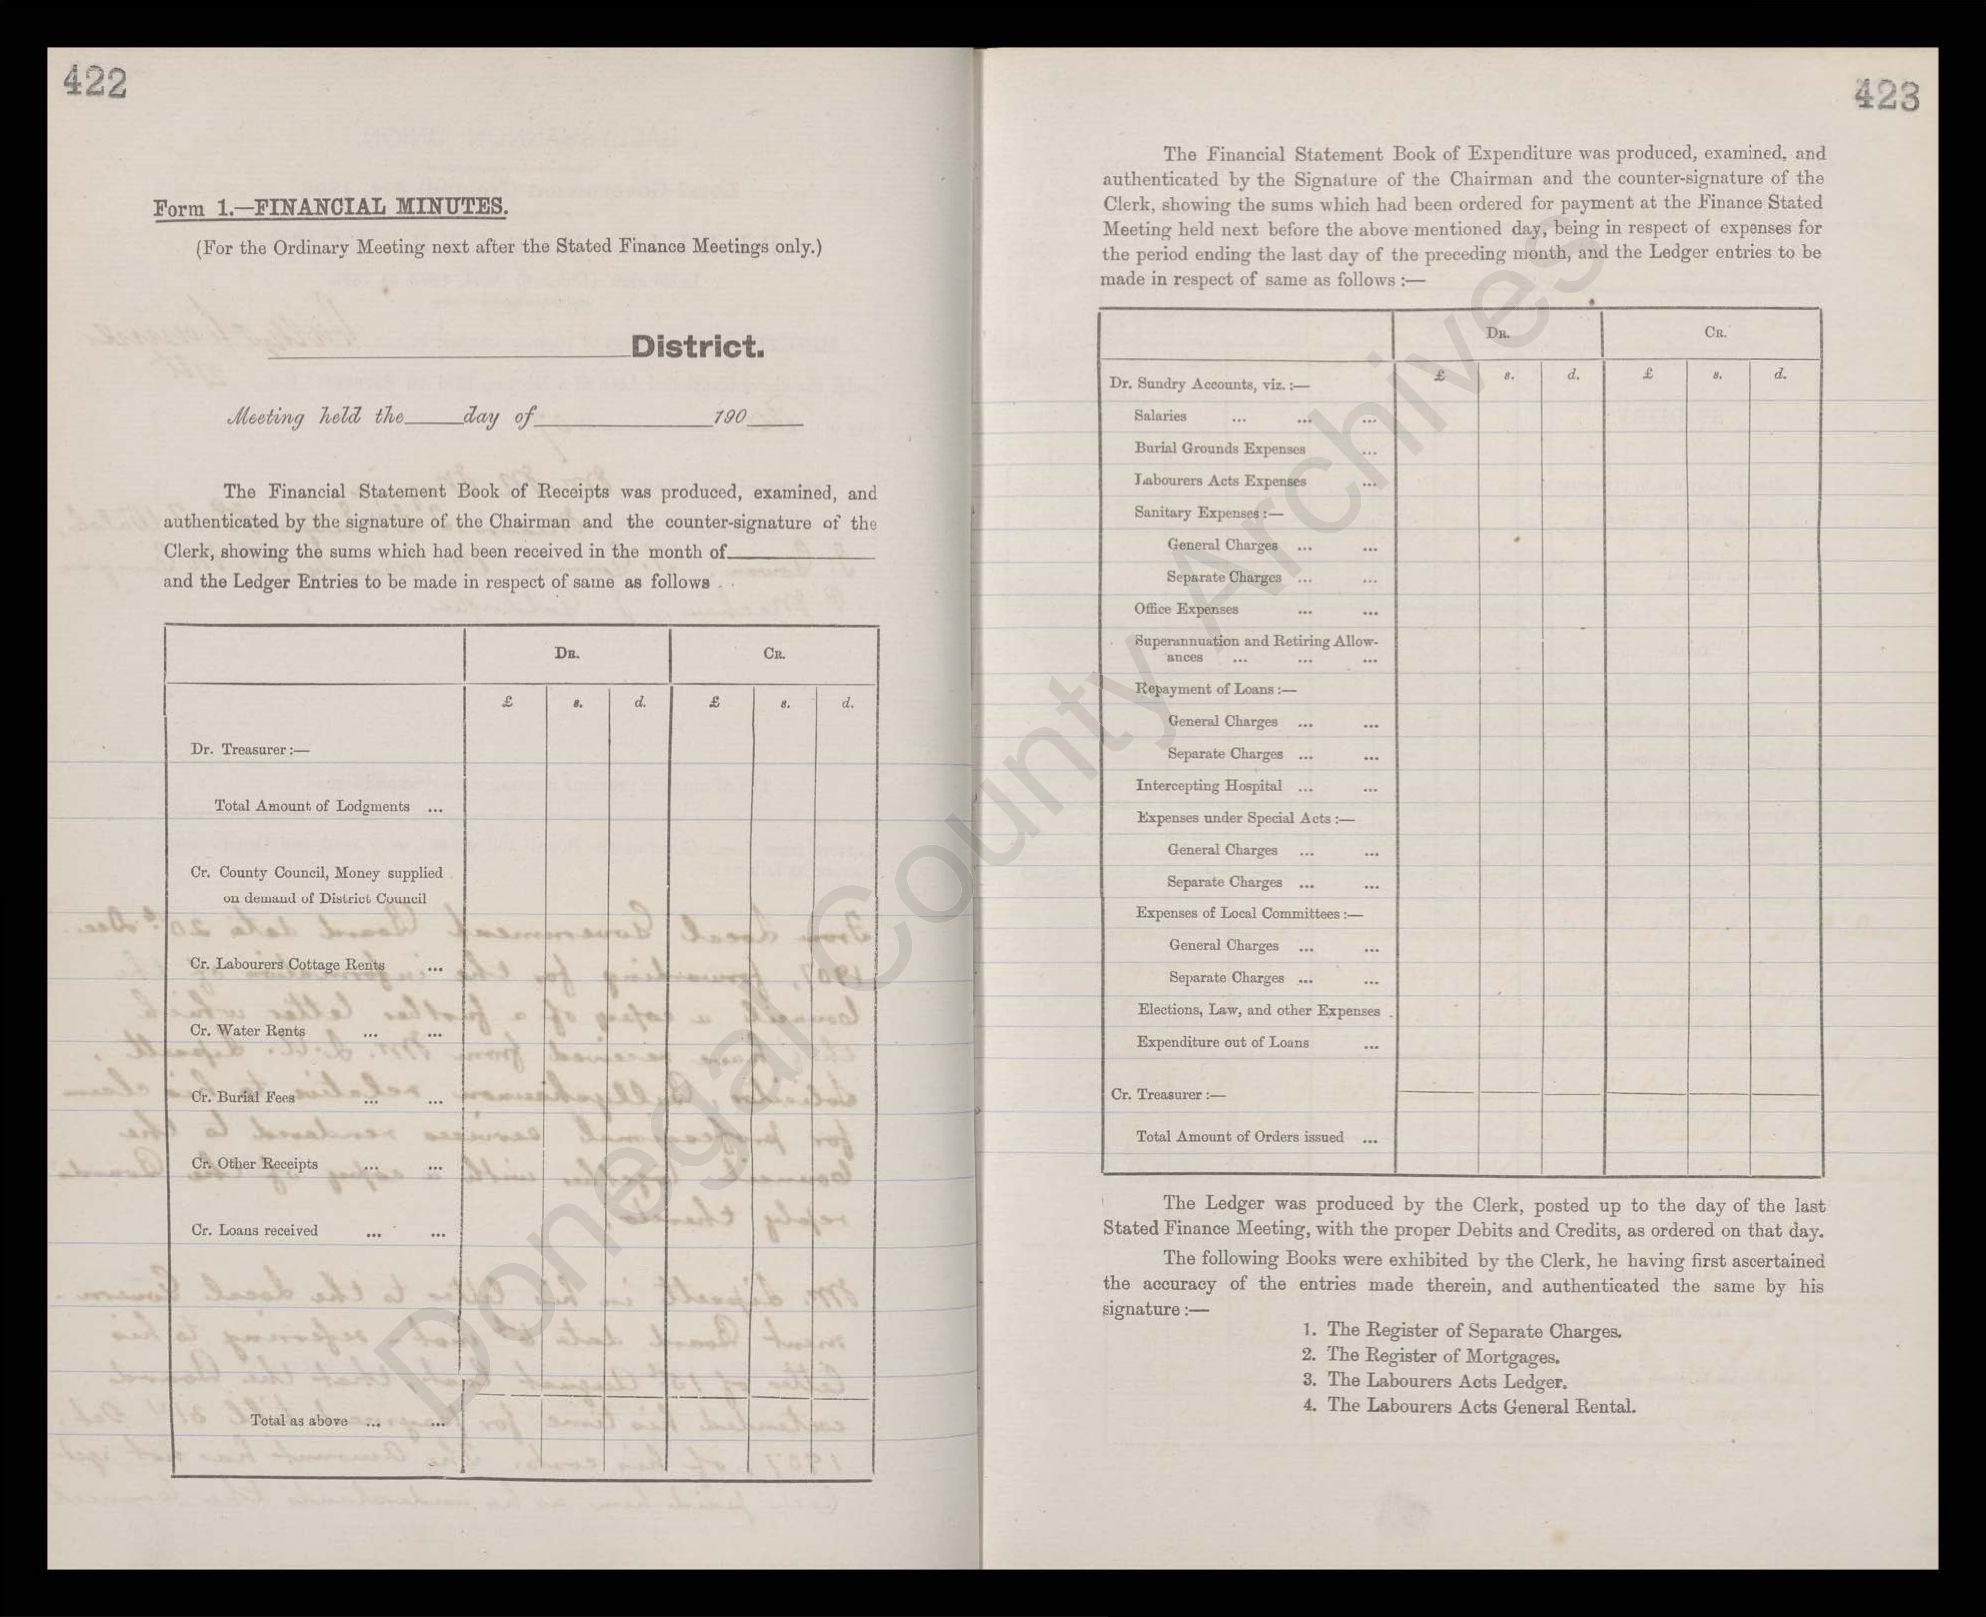 422
Form 1.—FINANCIAL MINUTES.
(For the Ordinary Meeting next after the Stated Finance Meetings only.)
District.
Meeting held the day of 190
The Financial Statement Book of Receipts was produced, examined, and
authenticated by the signature of the Chairman and the counter-signature of the
Clerk, showing the sums which had been received in the month of
and the Ledger Entries to be made in respect of same as follows
Dr. Cr.
£ s. d. £ s. d.
Dr. Treasurer:—
Total Amount of Lodgments ...
Cr. County Council, Money supplied
on demand of District Council
Cr. Labourers Cottage Rents ...
Cr. Water Rents ... ...
Cr. Burial Fees ... ...
Cr. Other Receipts ... ...
Cr. Loans received ... ...
Total as above ... ...
423
The Financial Statement Book of Expenditure was produced, examined, and
authenticated by the Signature of the Chairman and the counter-signature of the
Clerk, showing the sums which had been ordered for payment at the Finance Stated
Meeting held next before the above mentioned day, being in respect of expenses for
the period ending the last day of the preceding month, and the Ledger entries to be
made in respect of same as follows :—
Dr. Cr.
£ s. d. £ s. d.
Dr. Sundry Accounts, viz. :—
Salaries ... ... ...
Burial Grounds Expenses ...
Labourers Acts Expenses ...
Sanitary Expenses :—
General Charges ... ...
Separate Charges ... ...
Office Expenses ... ...
Superannuation and Retiring Allow-
ances ... ... ...
Repayment of Loans :—
General Charges ... ...
Separate Charges ... ...
Intercepting Hospital ... ...
Expenses under Special Acts :—
General Charges ... ...
Separate Charges ... ...
Expenses of Local Committees :—
General Charges ... ...
Separate Charges ... ...
Elections, Law, and other Expenses .
Expenditure out of Loans ...
Cr. Treasurer :—
Total Amount of Orders issued ...
The Ledger was produced by the Clerk, posted up to the day of the last
Stated Finance Meeting, with the proper Debits and Credits, as ordered on that day.
The following Books were exhibited by the Clerk, he having first ascertained
the accuracy of the entries made therein, and authenticated the same by his
signature :—
1. The Register of Separate Charges.
2. The Register of Mortgages.
3. The Labourers Acts Ledger.
4. The Labourers Acts General Rental.
Donegal County Archives